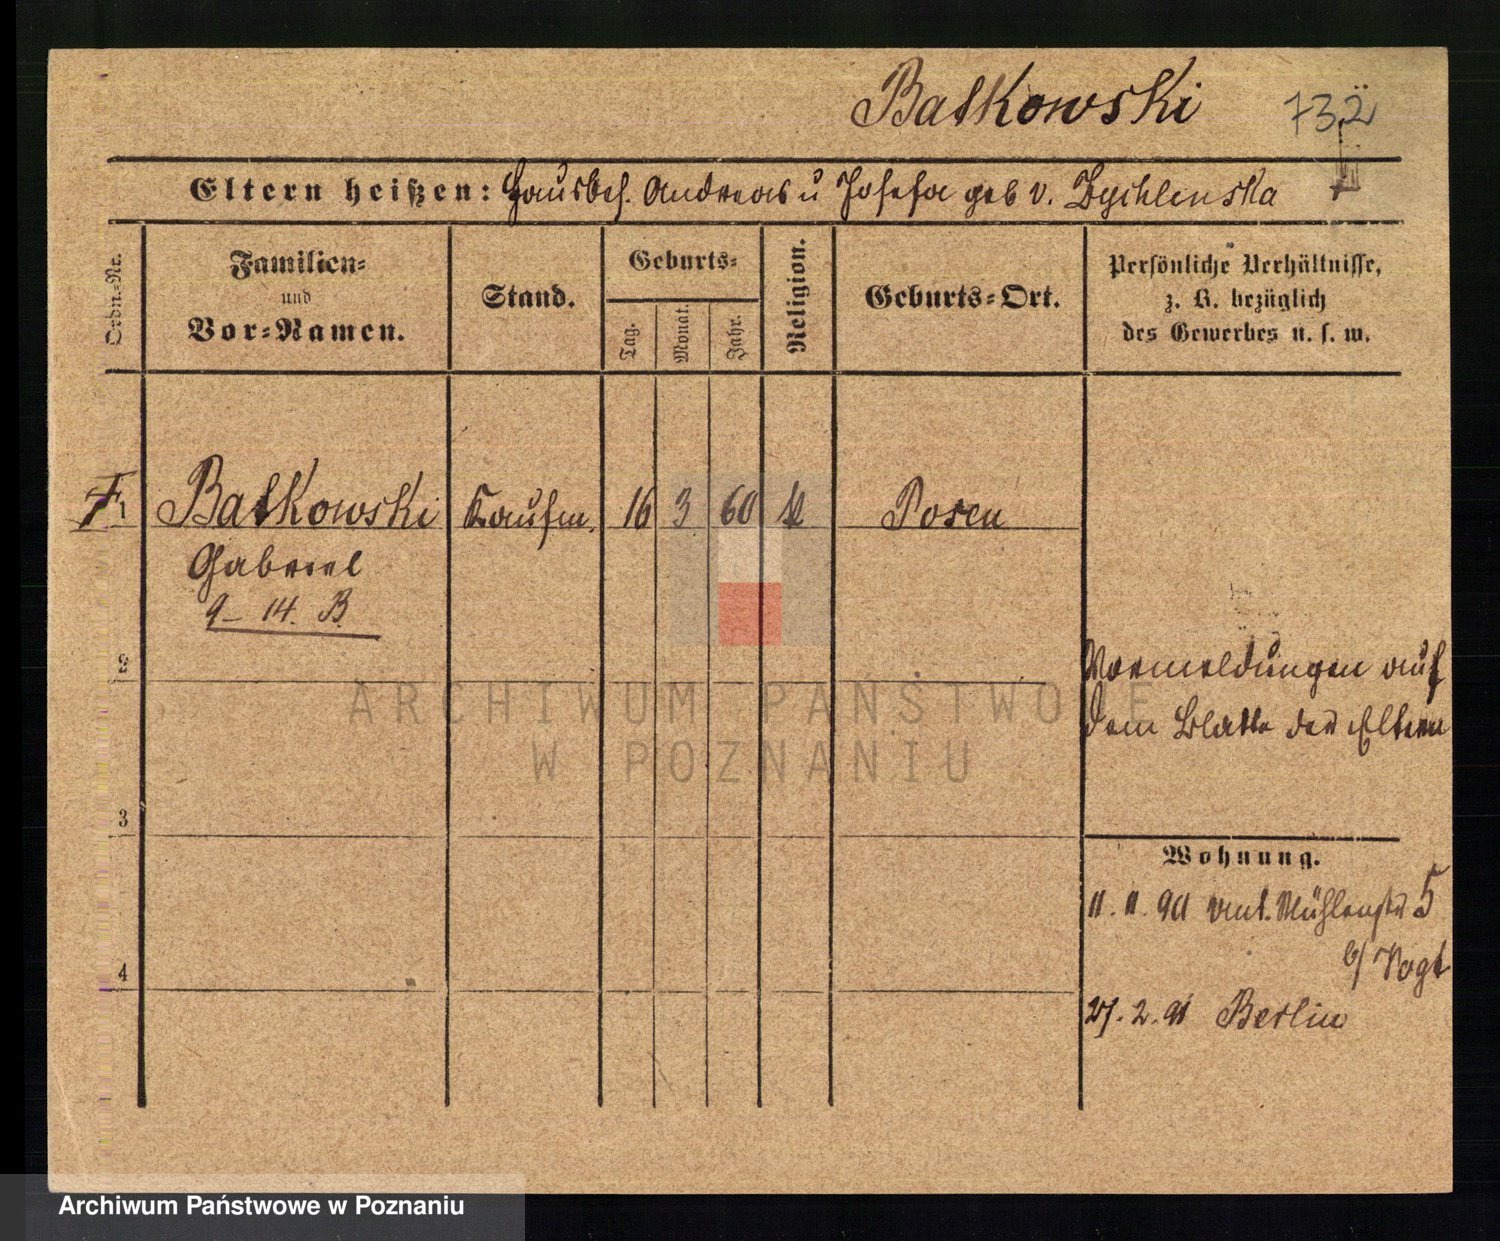 Batkowski 732
Eltern heißen: Hausbes. Andreas u Josefa geb v. Zychlenska
Ordn.-Nr.
Familien-
und
Vor-Namen.
Stand.
Geburts-
Tag.
Monat.
Jahr.
Religion.
Geburts-Ort.
Persönliche Verhältnisse,
z. B. bezüglich
des Gewerbes u. s. w.
1 Batkowski Kaufm. 16 3 60 k Posen
Gabriel
9 – 14. B
2
Vormeldungen auf
dem Blatte der Eltern
3
Wohnung.
11. 11. 90 unt. Mühlenstr 5
b/ Vogt
4
27. 2. 91 Berlin
ARCHIWUM PAŃSTWOWE
W POZNANIU
Archiwum Państwowe w Poznaniu